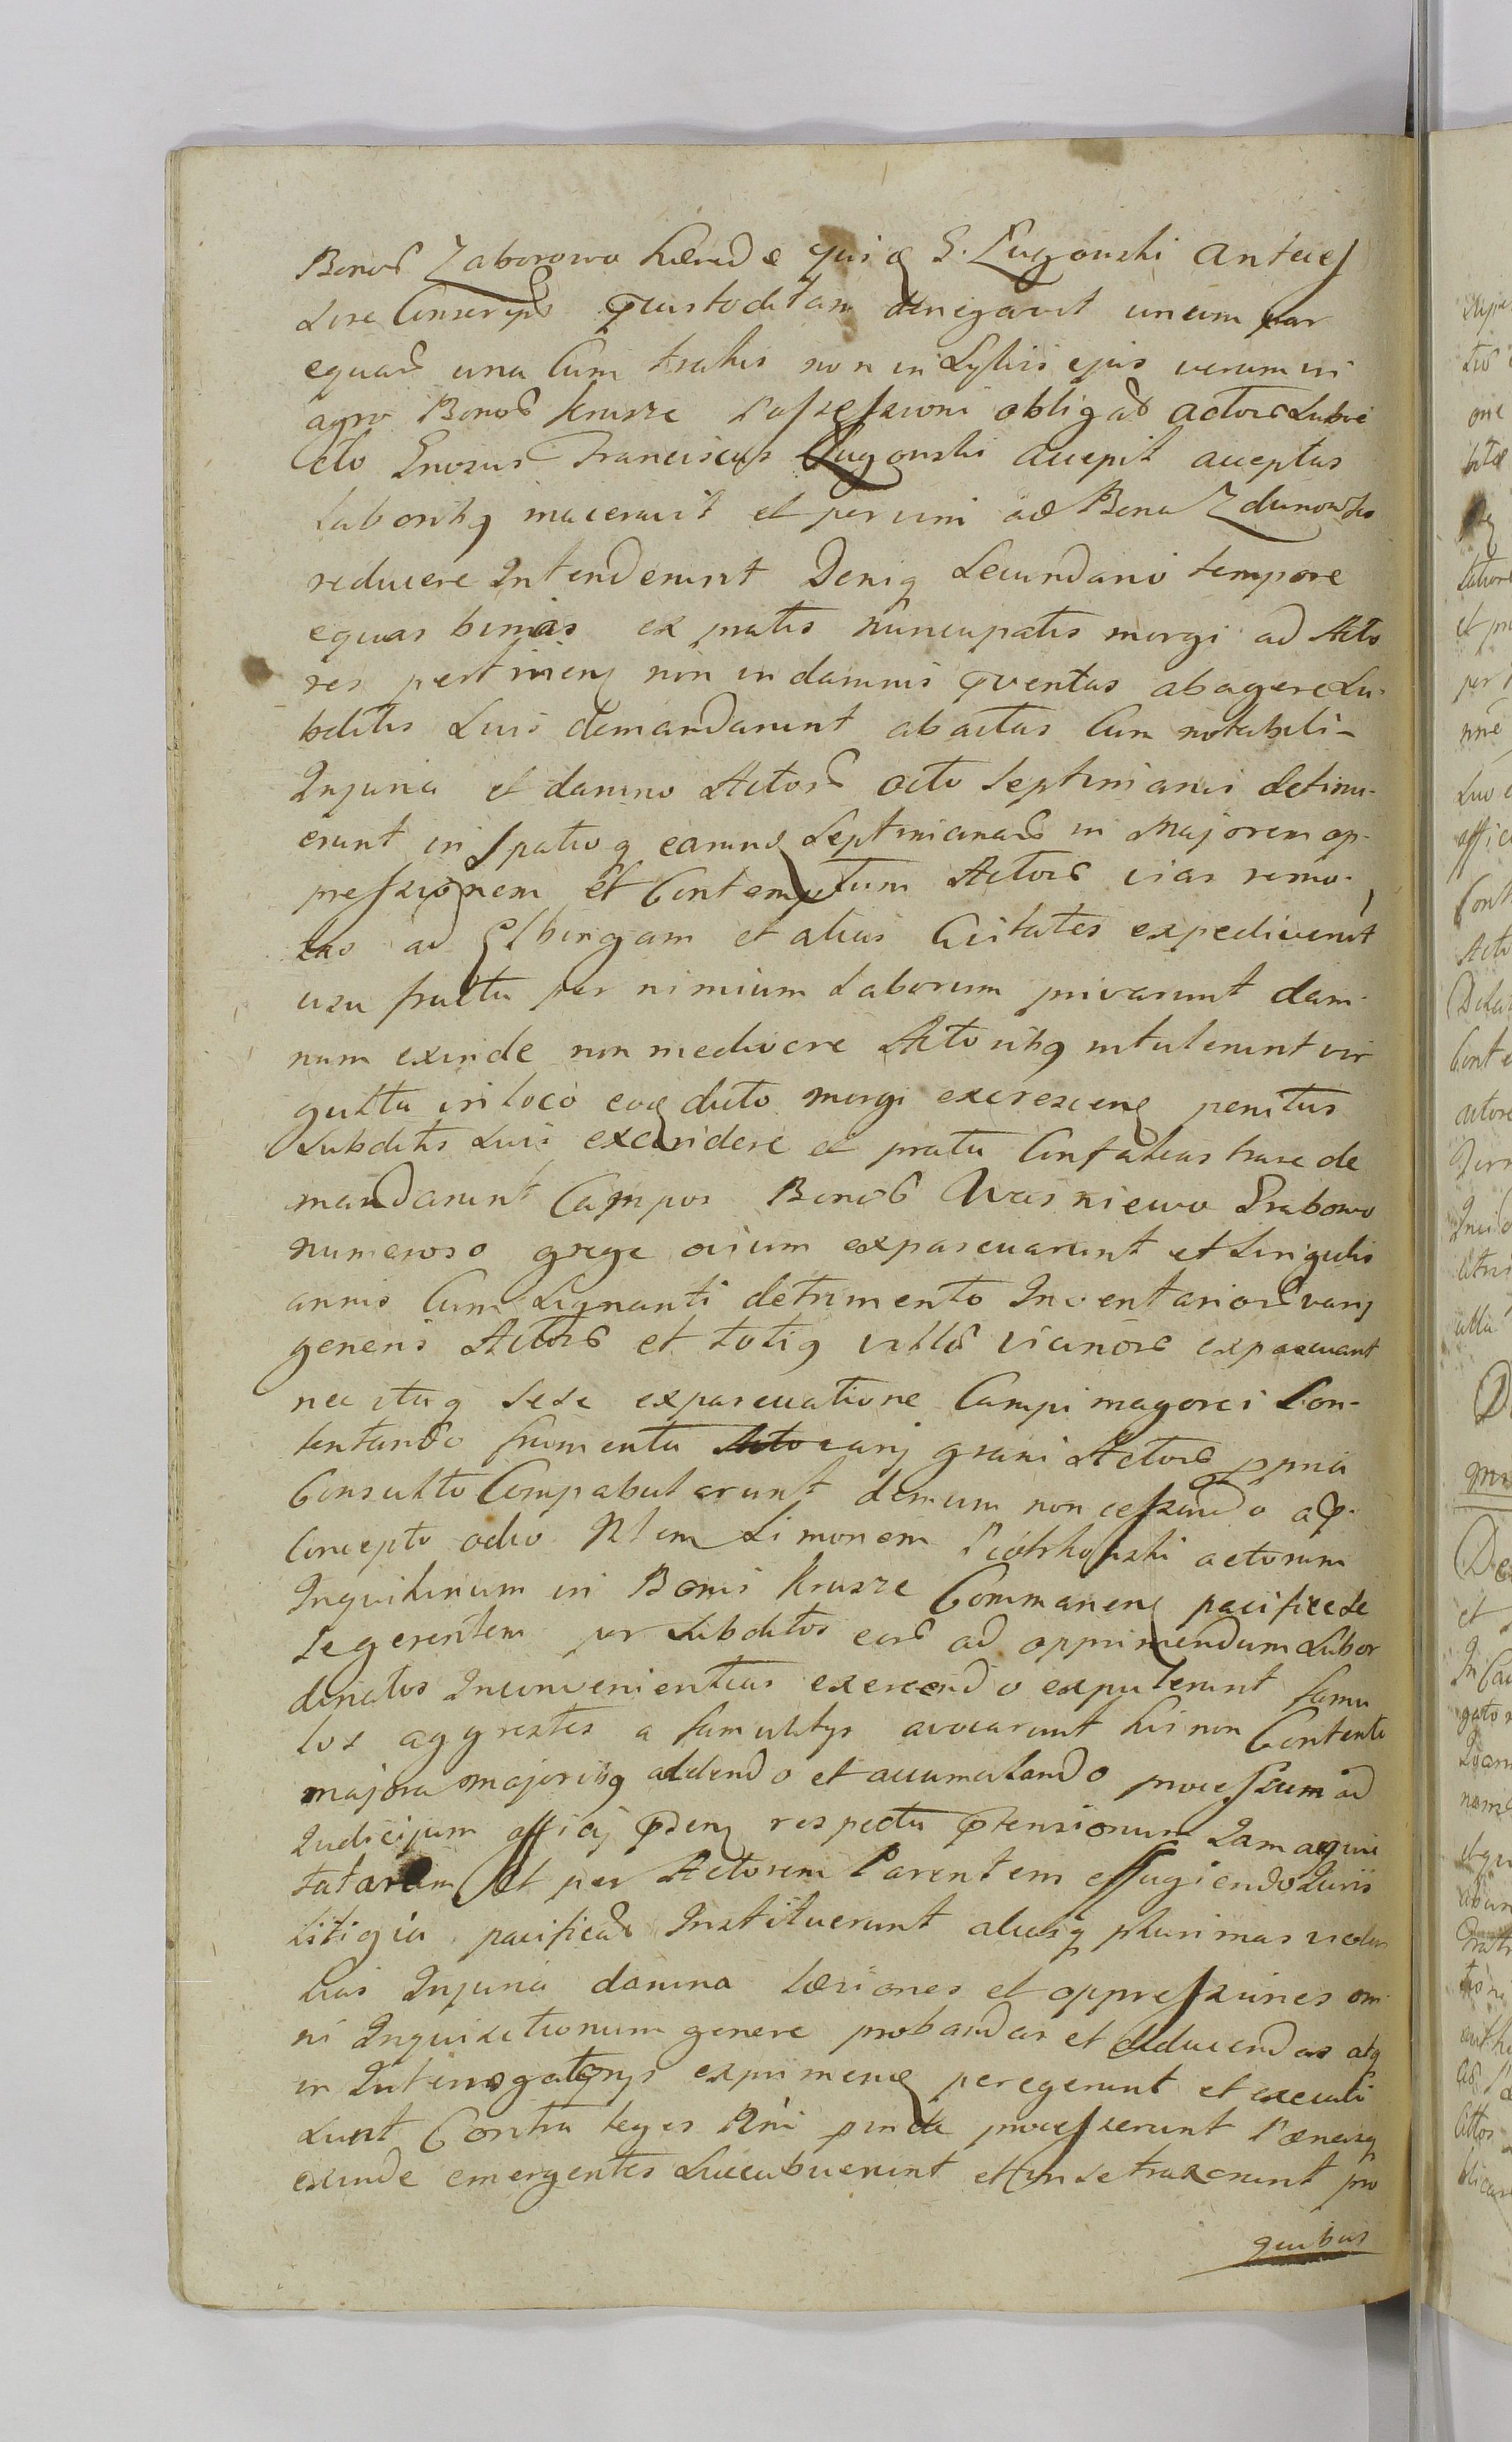 Bonor Zaborowo hæredæ G. Lugowski anteces
sore conscrips custoditam denegavit unum par
equar una cum trahis non in sylvis ejus verum in
agro Bonor Krusze possessioni obligat actor subje
cto Gnosus Franciscus Lugowski accepit acceptas
laboribq maceravit et per vim ad Bona Zdunowko
reducere intenderunt Deniq secundario tempore
equas binas ex pratis nuncupatis morgi ad Acto
res pertinen non in damnis repertas abagere su-
bditis suis demandarunt abactas cum notabili-
Injuria et damno Actor octo septimanis detinu-
erunt in spatioq earund septimanar in majorem op-
pressionem et Contemptum Actor vias remo-
tas ad Elbingam et alias Civitates expediverunt
usu fructu per nimium laborum privarunt dam-
num exinde non mediocre Actoribq intulerunt vir
gulta in loco eod dicto morgi excrescen penitus
subditis suis excindere et prata
mandarunt Campos Bonor Wasniewo Grabowo
numeroso grege ovium expascuarunt et singulis
annis cum signanti detrimento Inventarior varij
generis Actor et totiq villæ vicinor expascuant
nec itaq sese expascuatione Campi magorci Con-
tentando frumenta varij grani Actor ppria
Consulto Compabularunt demum non cessando ab
concepto odio Nlem Simonem Piotrkowski actorum
Inquilinum in Bonis Krusze Commanen pacifice se
se gerentem per subditos eor ad opprimendum subor
dinatos Inconvenientias exercendo expulerunt famu
los aggrestes a famulitijs avocarunt his non Contenti
majora majoribq addendo et accumulando processum ad
Judicium officij pden respectu prætensionum Jam acqui
tatarum et per Actorem Parentem effugiendo Juris
litigia pacificat Instituerunt aliasq plurimas violen
tias Injuria damna læsiones et oppressiones om-
ni Inquisitionum genere probandas et deducendas atq
in Interrogatorijs exprimen peregerunt et executi
sunt Contra leges Rni processerunt Pænasq
exinde emergentes succubuerunt et in se traxerunt pro
quibus